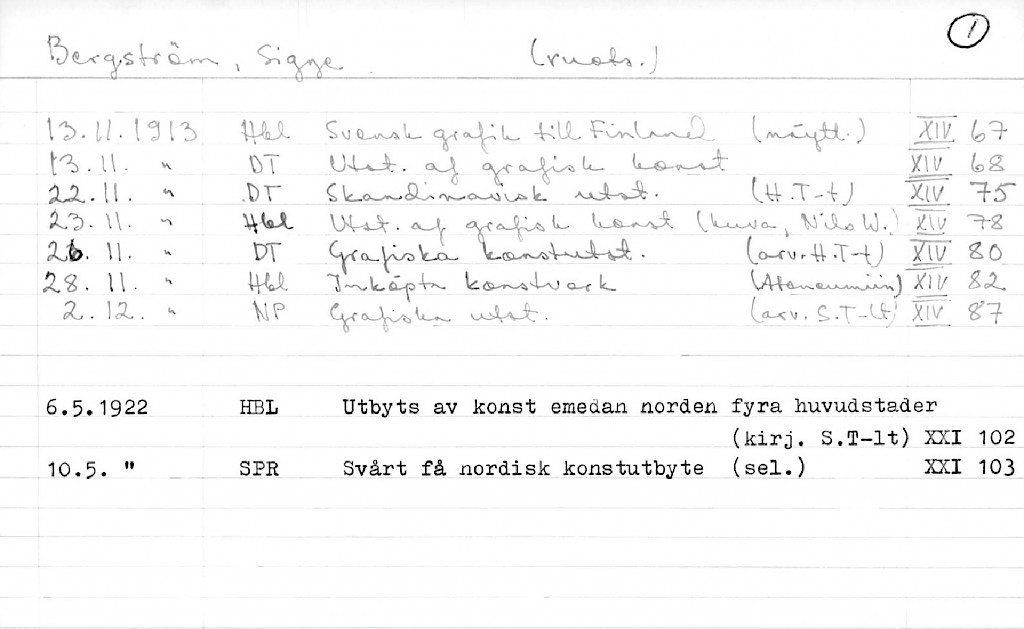 1
Bergström, Sigge (ruots.)
13.11.1913 Hbl Svensk grafik till Finland (näytt.) XIV 67
13.11. " DT Utst. af grafisk konst XIV 68
22.11. " DT Skandinavisk utst. (H.T-t) XIV 75
23.11. " Hbl Utst. af grafisk konst (kuva, Nils W.) XIV 78
26.11. " DT Grafiska konstutst. (arv. H.T-t) XIV 80
28.11. " Hbl Inköpta konstverk (Ateneumiin) XIV 82
2.12. " NP Grafiska utst. (arv. S.T-lt) XIV 87
6.5.1922 HBL Utbyts av konst emedan norden fyra huvudstader
(kirj. S.T-lt) XXI 102
10.5. " SPR Svårt få nordisk konstutbyte (sel.) XXI 103